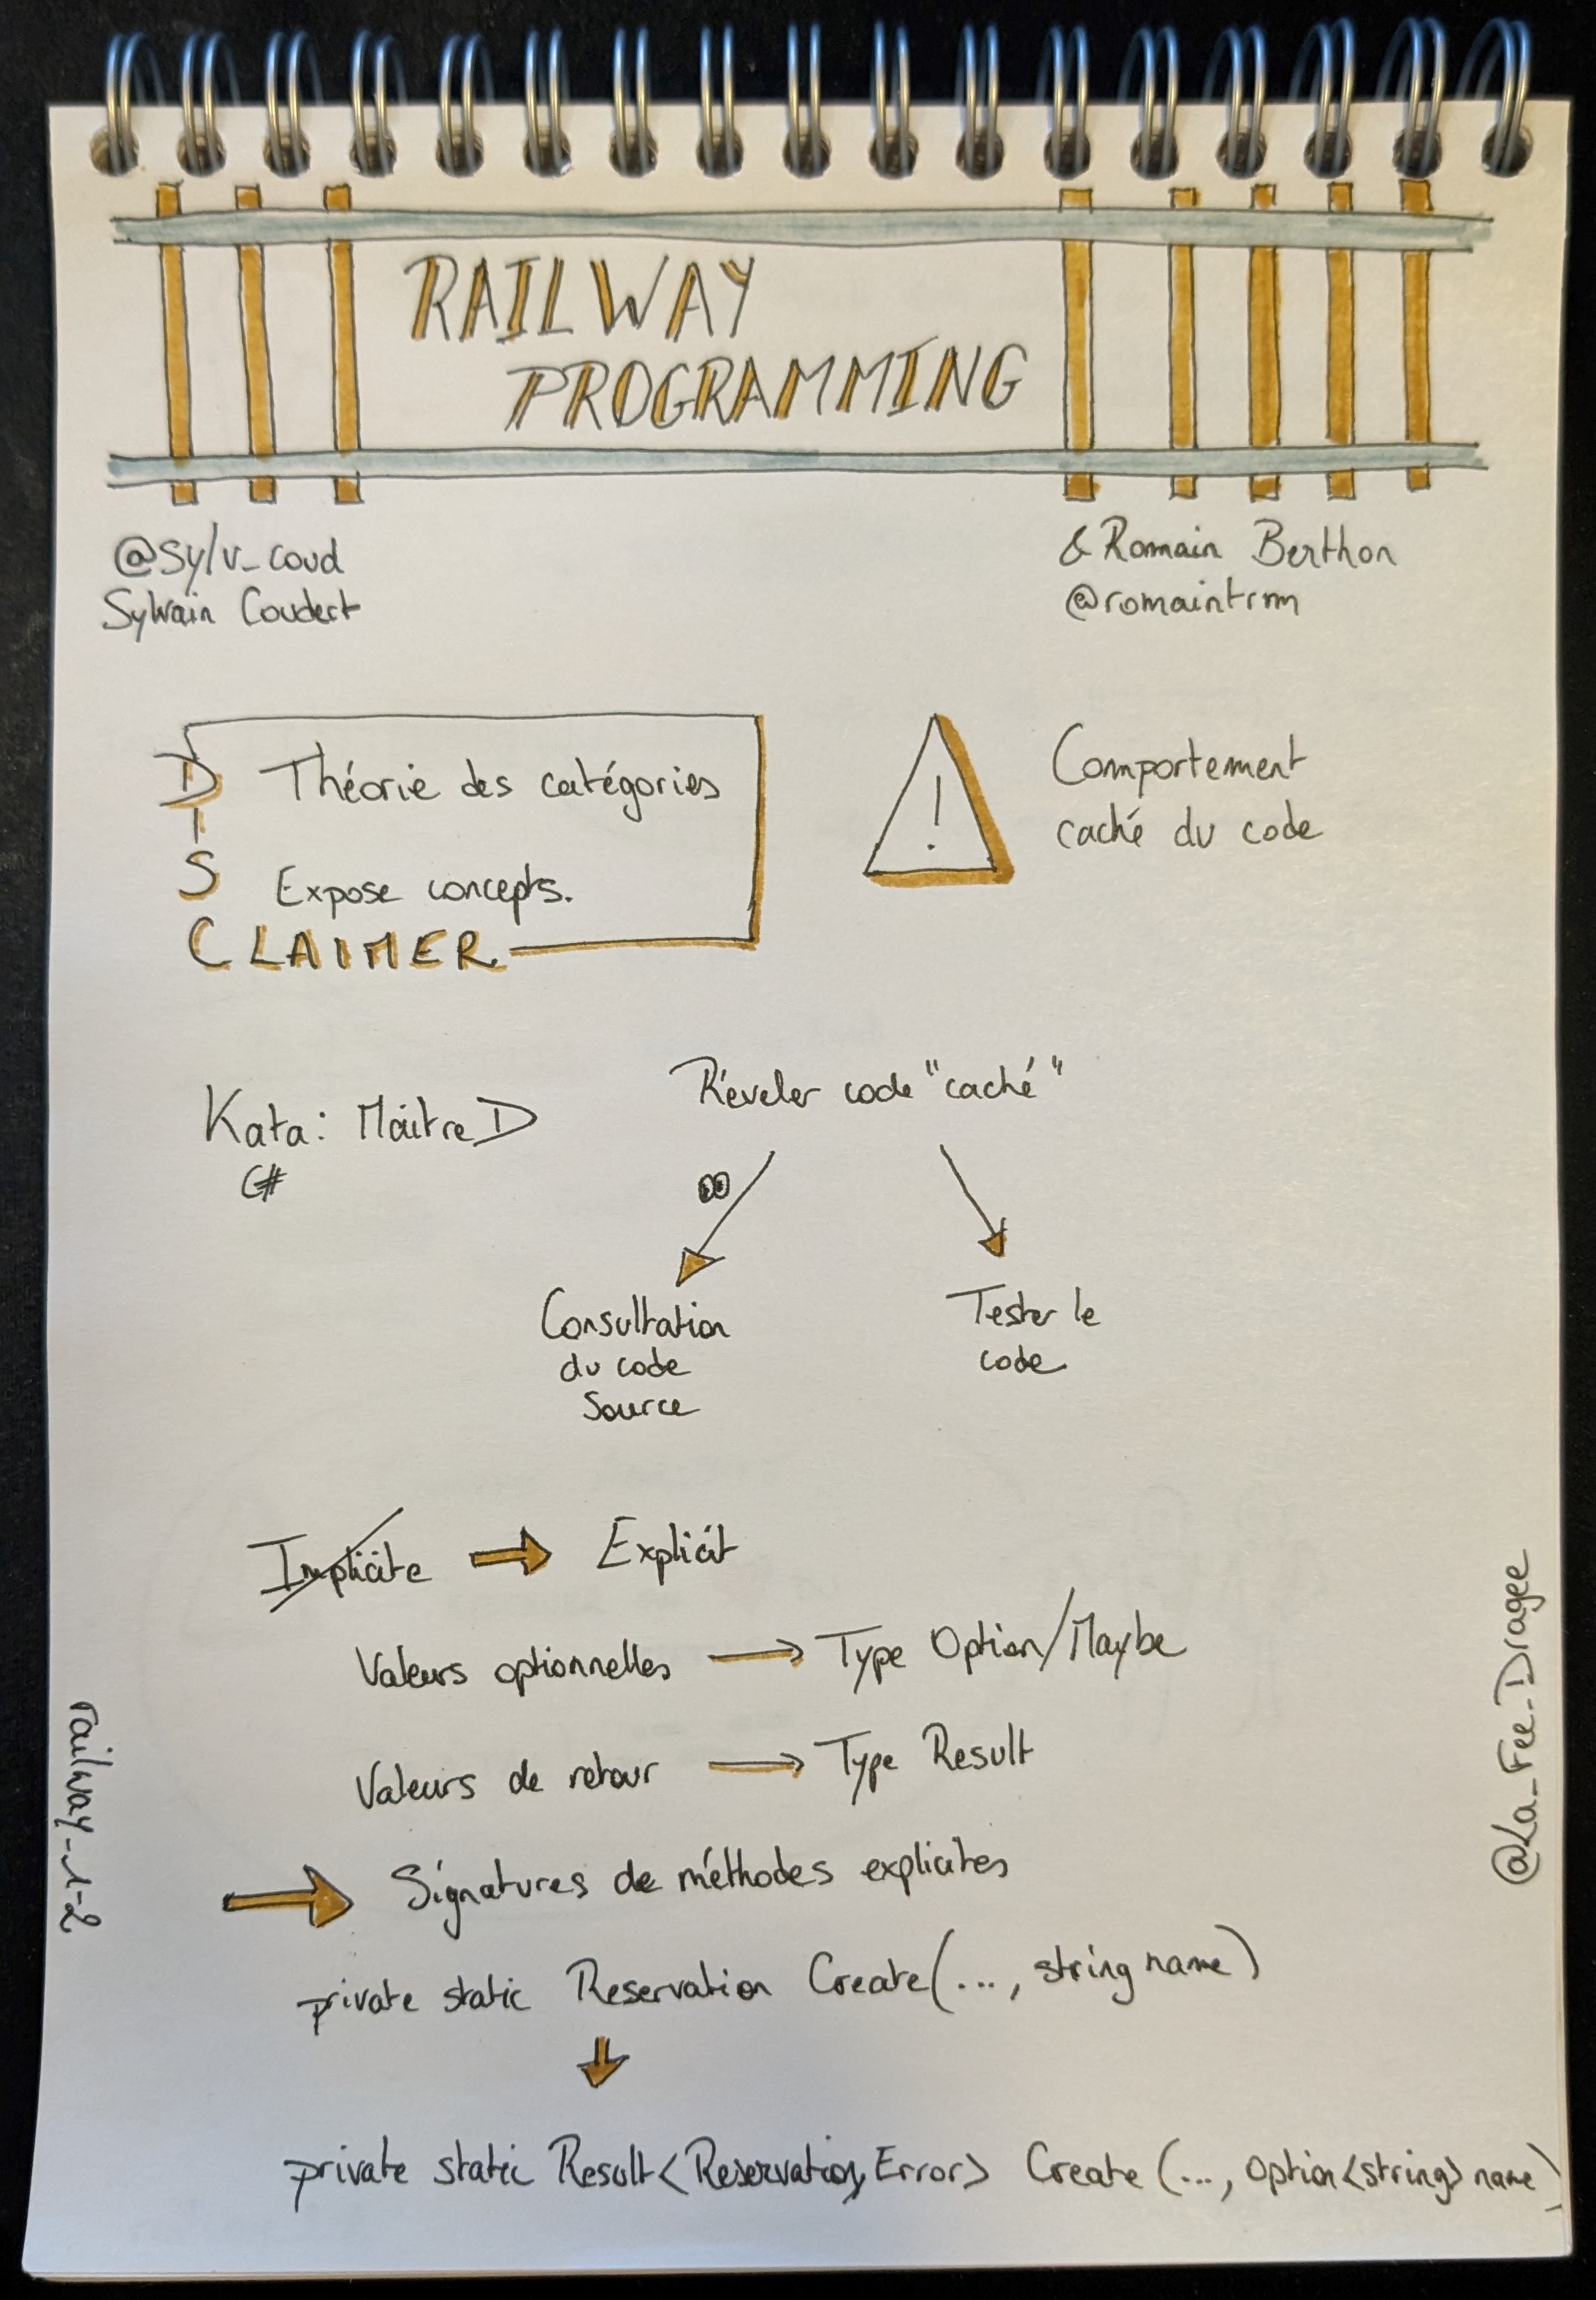 RAILWAY
PROGRAMMING
@sylv_coud
Sylvain Coudert
& Romain Berthon
@romaintrm
DISCLAIMER
Théorie des catégories
Expose concepts.
!
Comportement
caché du code
Kata: Maitre D
C#
Réveler code "caché"
Consultation
du code
Source
Tester le
code
Implicite → Explicit
Valeurs optionnelles → Type Option/Maybe
Valeurs de retour → Type Result
→ Signatures de méthodes explicites
private static Reservation Create(..., string name)
private static Result<Reservation, Error> Create (..., Option<string> name)
railway_1-2
@La_Fee_Dragee